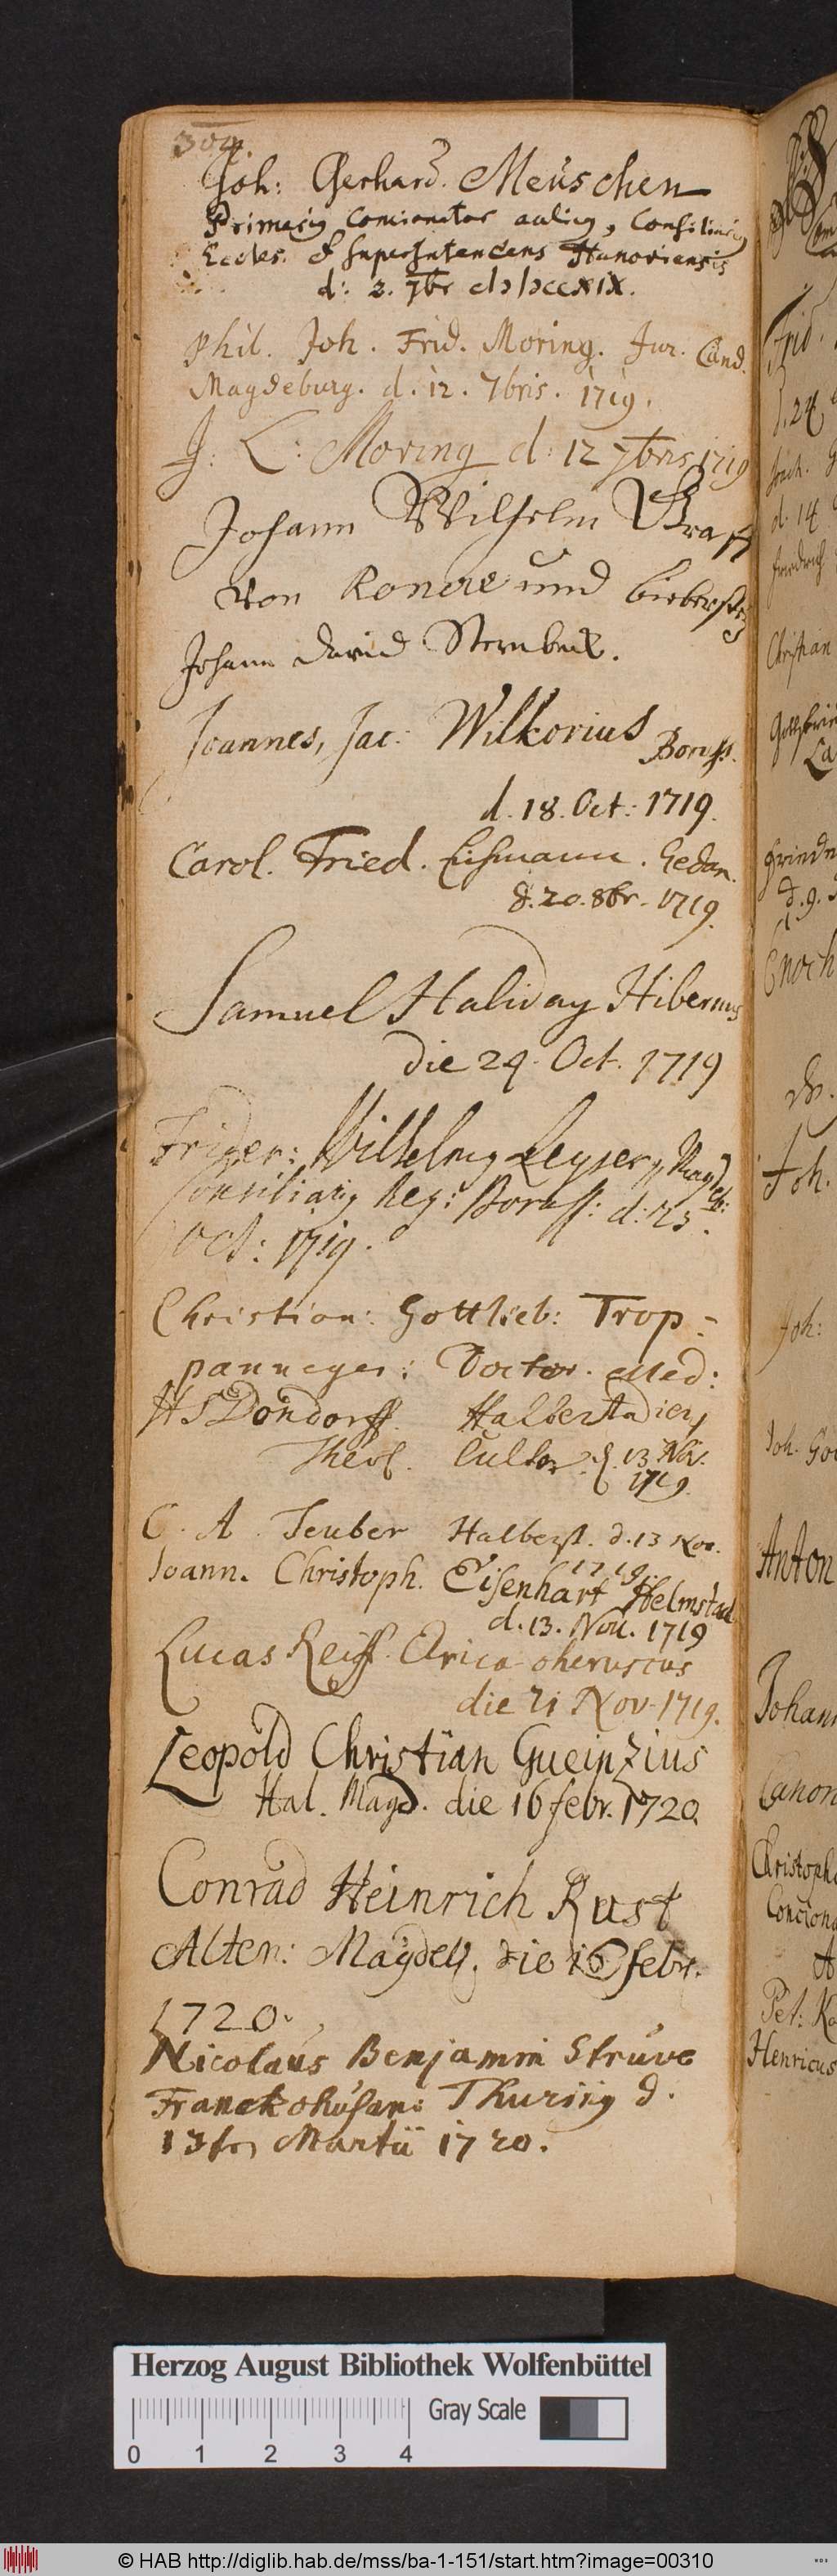 304.
Joh: Gerhard. Meuschen
Primariq Concionator auliq, Consiliariq
Eccles. & Superintendens Hanoviensis
d: 2. 7br cIɔIɔccxix.
Phil. Joh. Frid. Moring. Jur. Cand.
Magdeburg. d. 12. 7bris. 1719.
J: C: Moring d: 12 7bris 1719
Johann Wilhelm Graff
von und
Johann David Sternbeck.
Joannes, Jac: Wilkorius Boruss.
d. 18. Oct: 1719.
Carol. Fried. Gedan.
d. 20. 8br. 1719.
Samuel Haliday Hibernus
die 24. Oct. 1719
Frider: Wilhelmq Leyserq, Magdeb:
Consiliariq Reg: Boruss: d: 25.
Oct: 1719.
Christian: Gottlieb: Trop-
panneger: Doctor. Med:
HS Dondorff. Halberstadiens
Theol. Cultor. d. 13 Nov.
1719.
C. A. Teuber Halberst. d. 13 Nov.
1719.
Joann. Christoph. Eisenhart Helmstad.
d. 13. Nov. 1719
Lucas Reiff. Cheruscus
die 21 Nov. 1719.
Leopold Christian Gueinzius
Hal. Magd. die 16 febr. 1720.
Conrad Heinrich Rust
Alten: Magdeb. die 16 febr.
1720.
Nicolaus Benjamin Struve
Franckohusan: Thuringq d.
13 Martii 1720.
Frid.
d. 24
d. 14
Friedrich
Christian
d. 9.
Enoch
Joh.
Joh:
Joh.
Anton
Johann
Canon
Christoph
Concion
Pet:
Henricus
Herzog August Bibliothek Wolfenbüttel
Gray Scale
0 1 2 3 4
© HAB http://diglib.hab.de/mss/ba-1-151/start.htm?image=00310